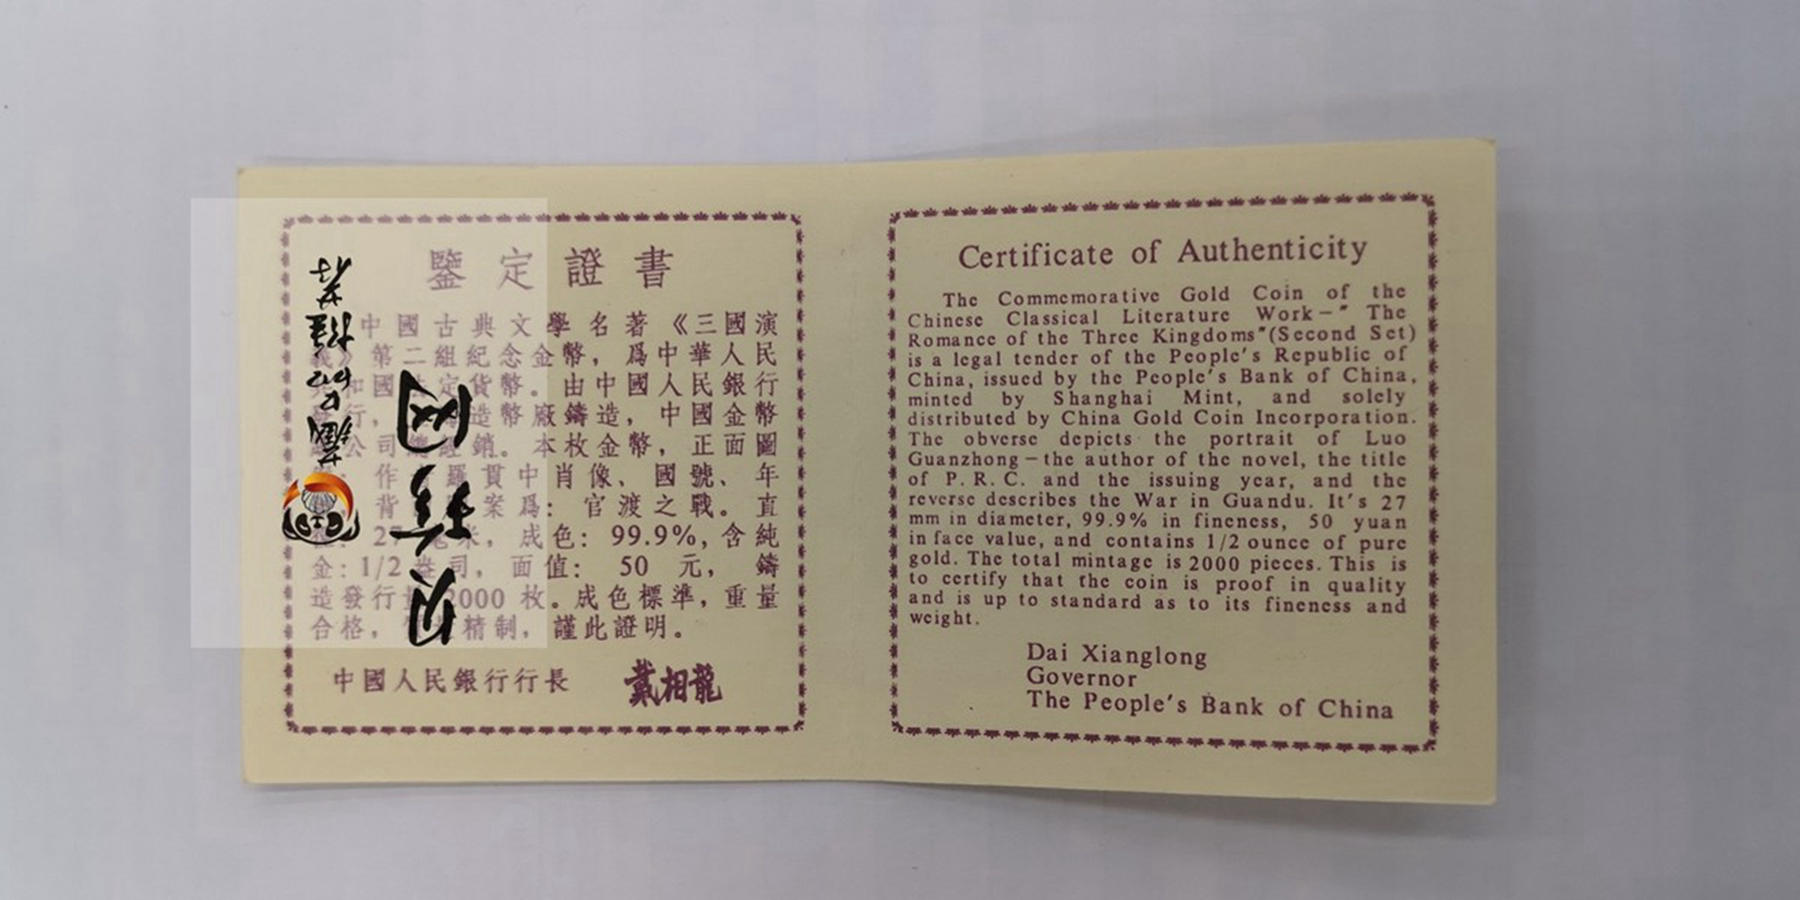 鑒定證書
中國古典文學名著《三國演
義》第二組紀念金幣，爲中華人民
共和國法定貨幣。由中國人民銀行
發行，造幣廠鑄造，中國金幣
公司總經銷。本枚金幣，正面圖
作羅貫中肖像、國號、年
背案爲：官渡之戰。直
27米，成色：99.9%，含純
金：1/2盎司，面值：50元，鑄
造發行量2000枚。成色標準，重量
合格，精制，謹此證明。
中國人民銀行行長 戴相龍
Certificate of Authenticity
The Commemorative Gold Coin of the
Chinese Classical Literature Work—" The
Romance of the Three Kingdoms"(Second Set)
is a legal tender of the People's Republic of
China, issued by the People's Bank of China,
minted by Shanghai Mint, and solely
distributed by China Gold Coin Incorporation.
The obverse depicts the portrait of Luo
Guanzhong—the author of the novel, the title
of P.R.C. and the issuing year, and the
reverse describes the War in Guandu. It's 27
mm in diameter, 99.9% in fineness, 50 yuan
in face value, and contains 1/2 ounce of pure
gold. The total mintage is 2000 pieces. This is
to certify that the coin is proof in quality
and is up to standard as to its fineness and
weight.
Dai Xianglong
Governor
The People's Bank of China